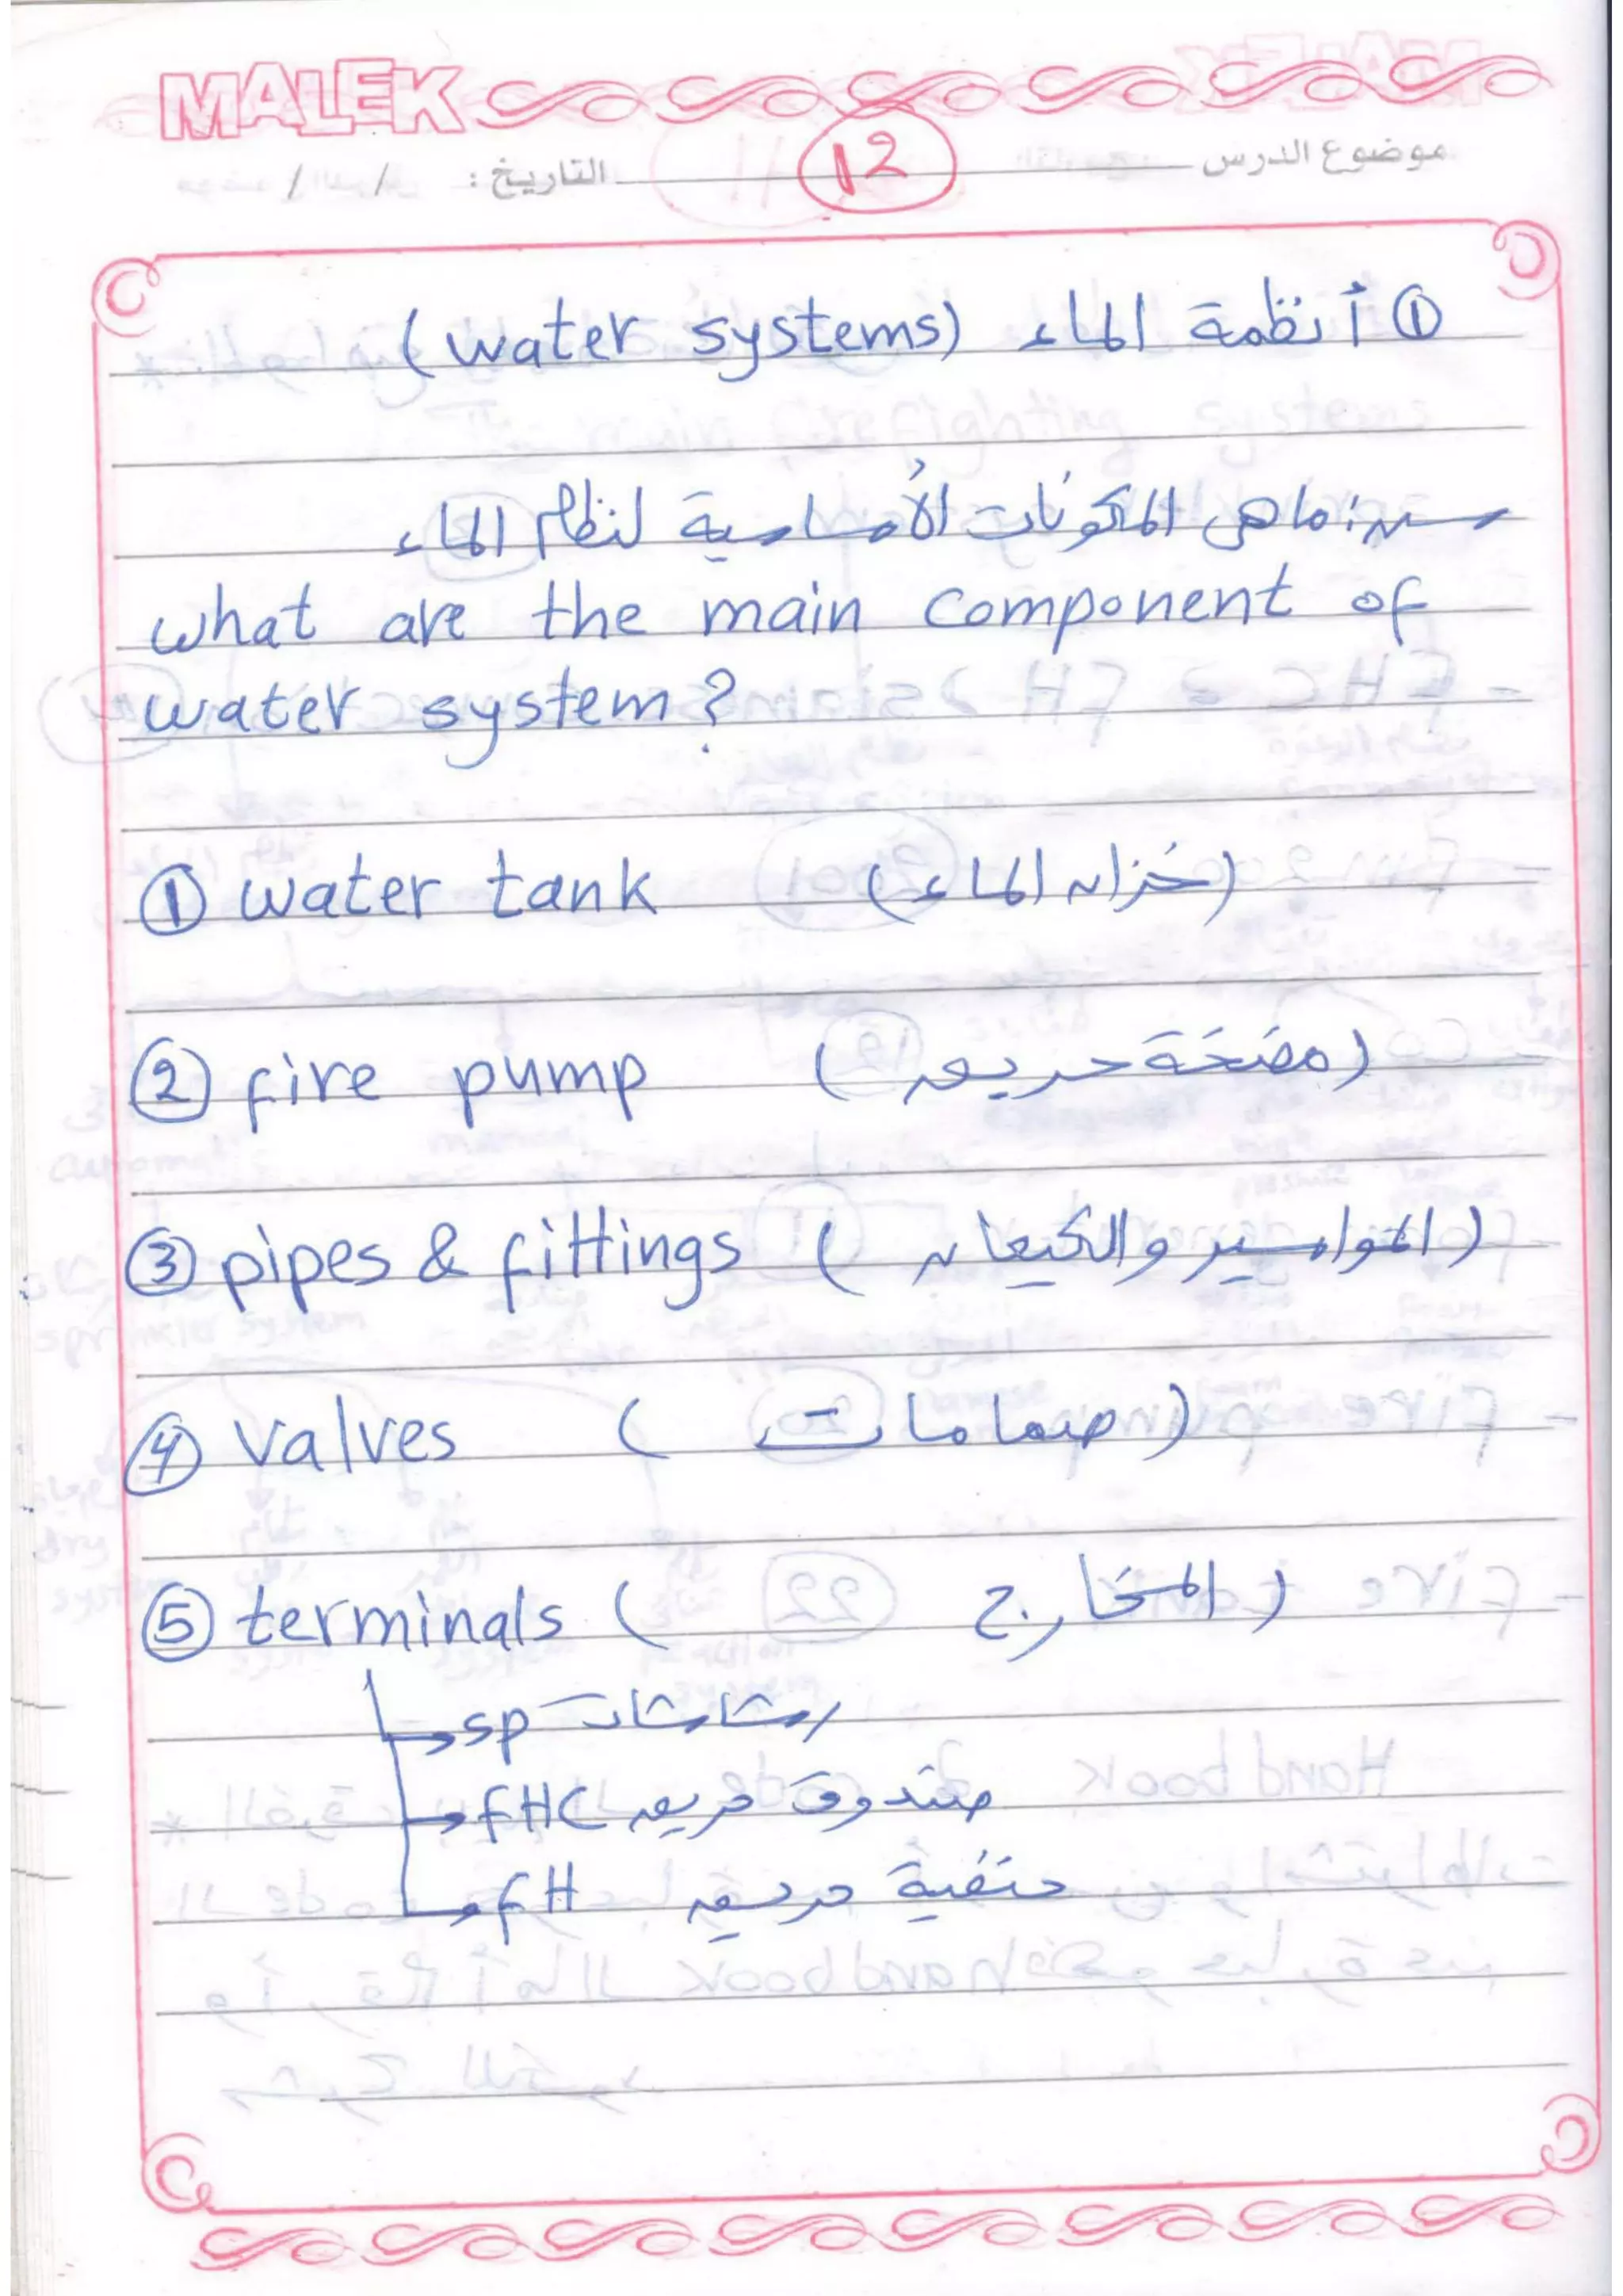 MALEK
موضوع الدرس 12 التاريخ : / /
① أنظمة الماء (water systems)
س: ماهى المكونات الأساسية لنظام الماء
what are the main component of
water system?
① water tank (خزان الماء)
② fire pump (مضخة حريق)
③ pipes & fittings (المواسير والكيعان)
④ valves (صمامات)
⑤ terminals (المخارج)
sp رشاشات
FHC صندوق حريق
FH حنفية حريق